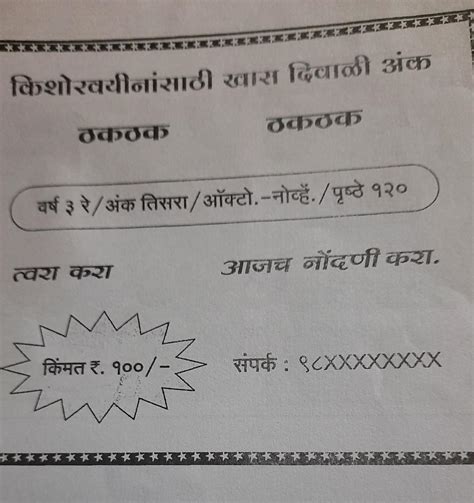 किशोरवयीनांसाठी खास दिवाळी अंक
ठकठक ठकठक
वर्ष ३ रे/अंक तिसरा/ऑक्टो.-नोव्हें./पृष्ठे १२०
त्वरा करा आजच नोंदणी करा.
किंमत रु. १००/- संपर्क : ९८XXXXXXXX